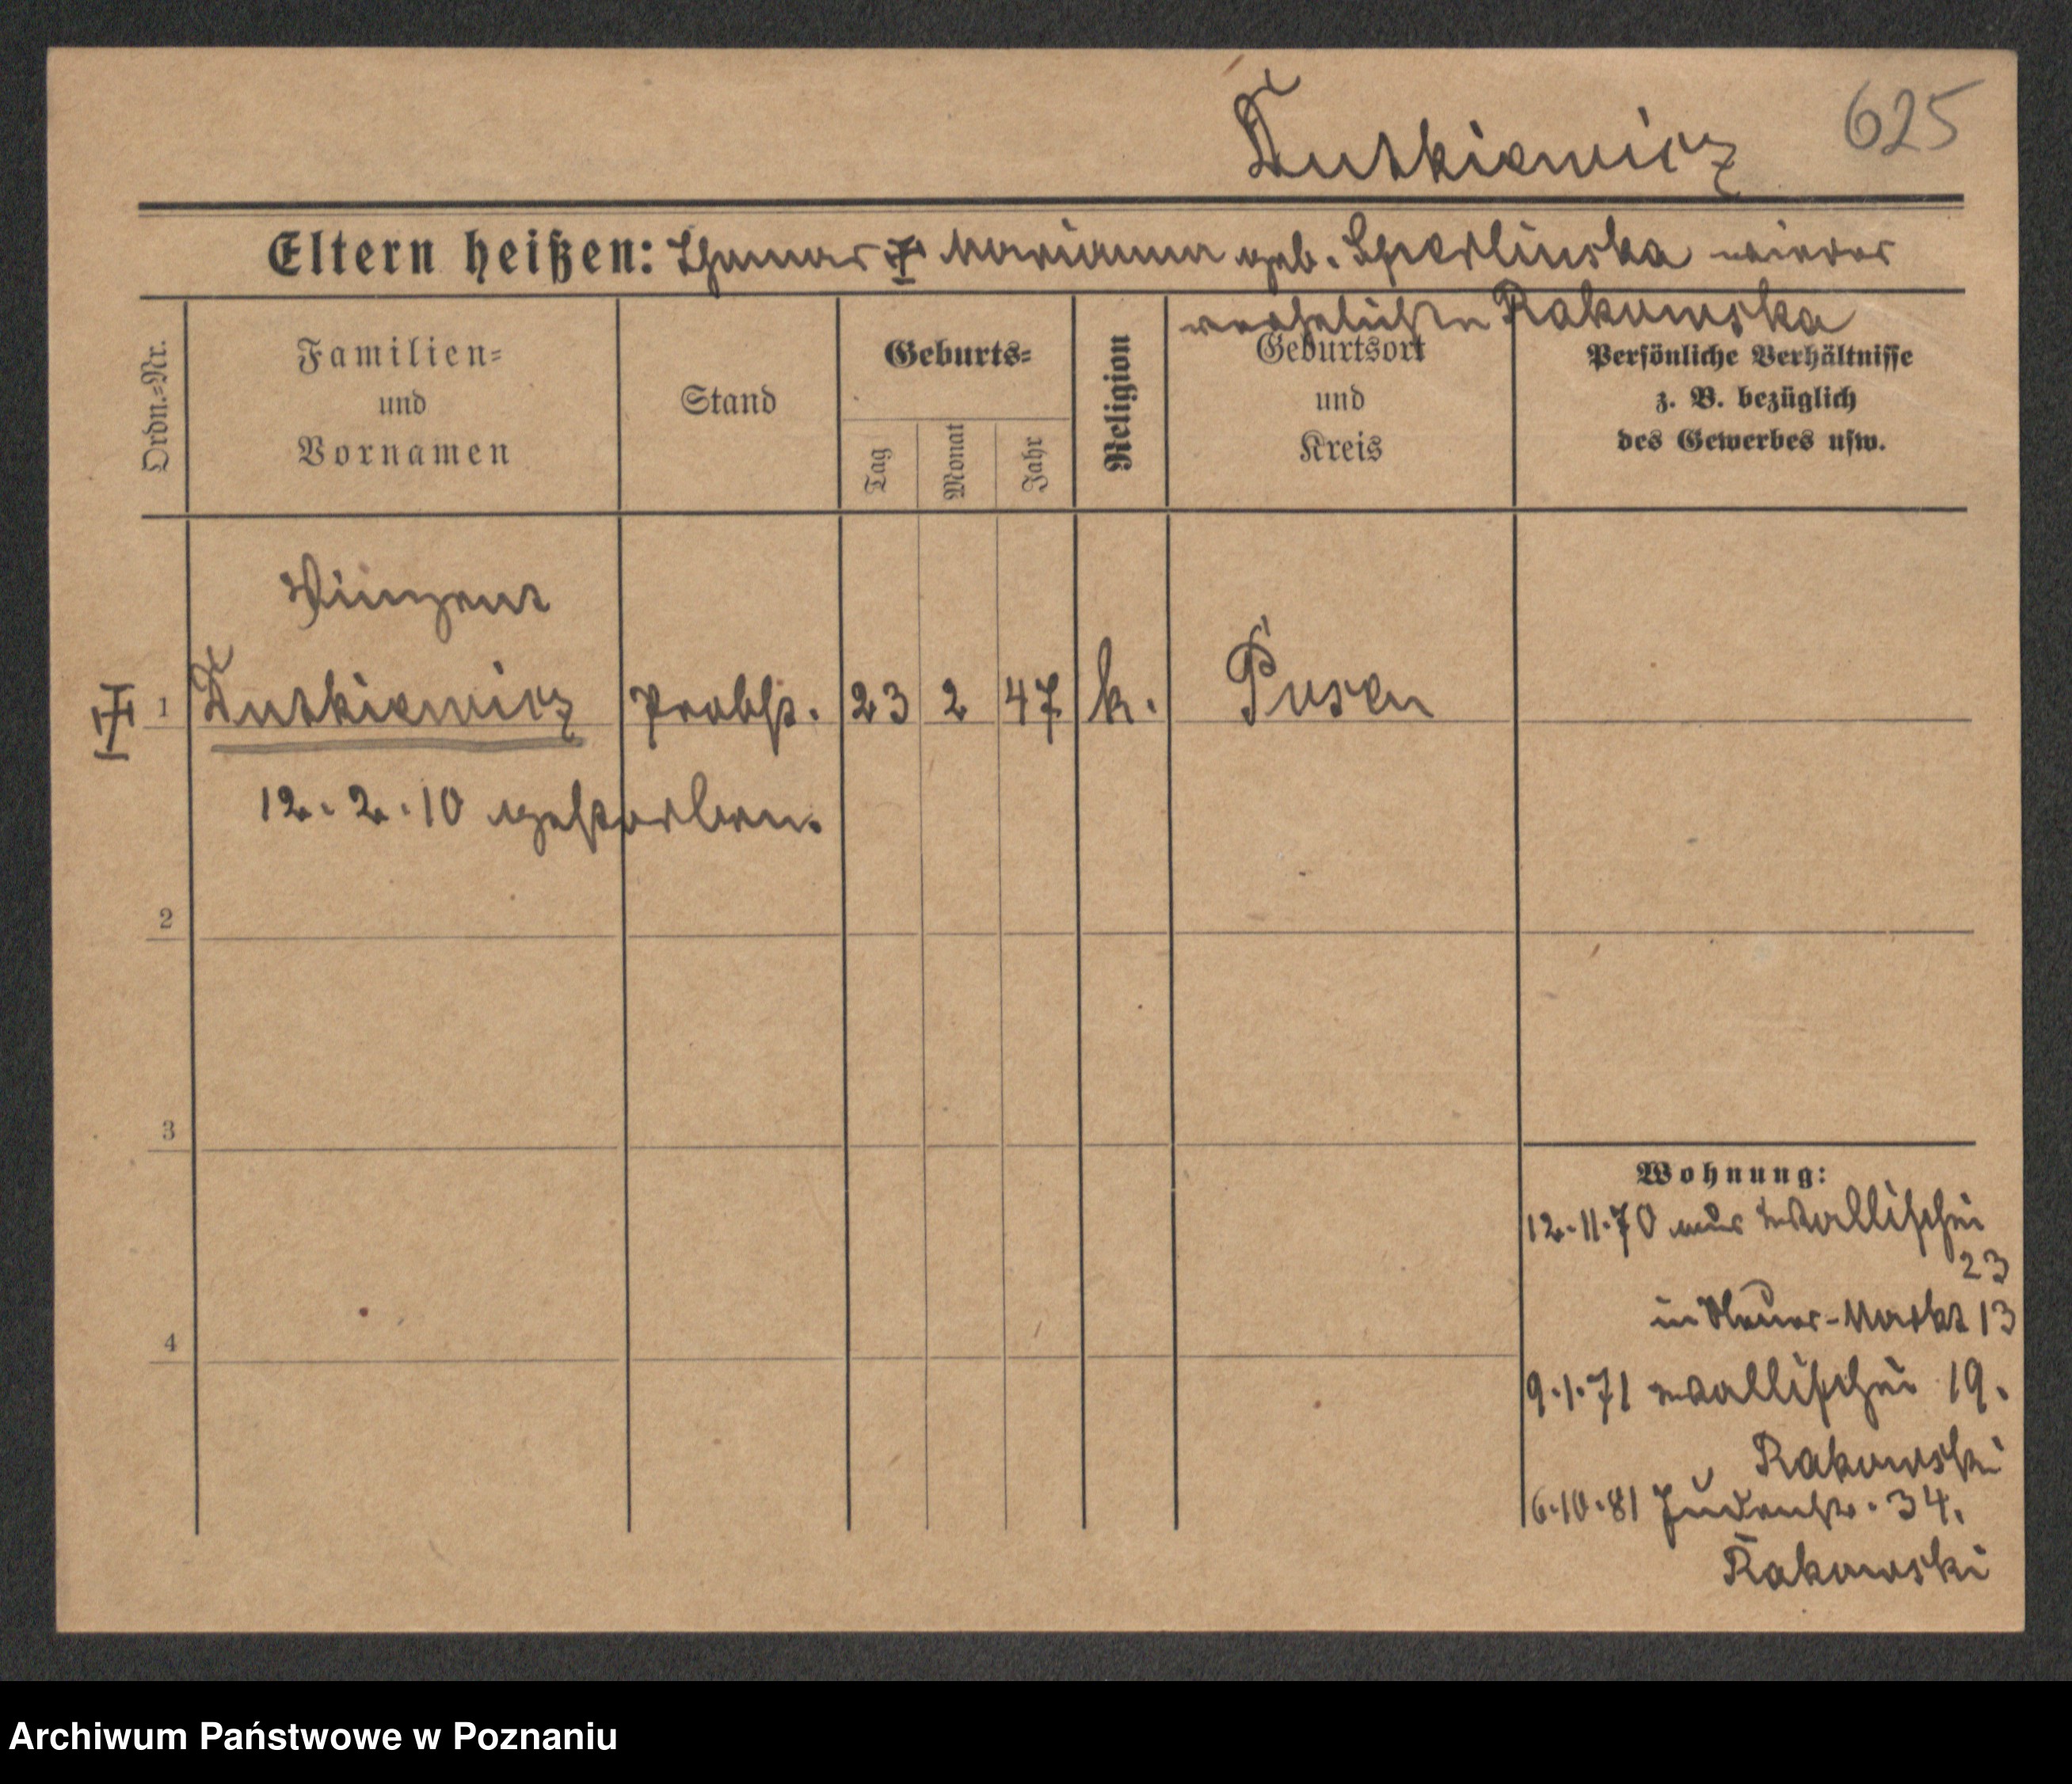 Dutkiewicz
625
Eltern heißen: Thomas † Marianna geb. Sperlinska wieder
verehelichte Rakowska
Ordn.=Nr.
Familien=
und
Vornamen
Stand
Geburts=
Tag
Monat
Jahr
Religion
Geburtsort
und
Kreis
Persönliche Verhältnisse
z. B. bezüglich
des Gewerbes usw.
Vinzent
† 1 Dutkiewicz Probst. 23 2 47 k. Posen
12.2.10 gestorben.
2
3
4
Wohnung:
12.11.70 aus Wallischei
23
in Neuer-Markt 13
9.1.71 Wallischei 19.
Rakowski
6.10.81 Judenstr. 34.
Rakowski
Archiwum Państwowe w Poznaniu